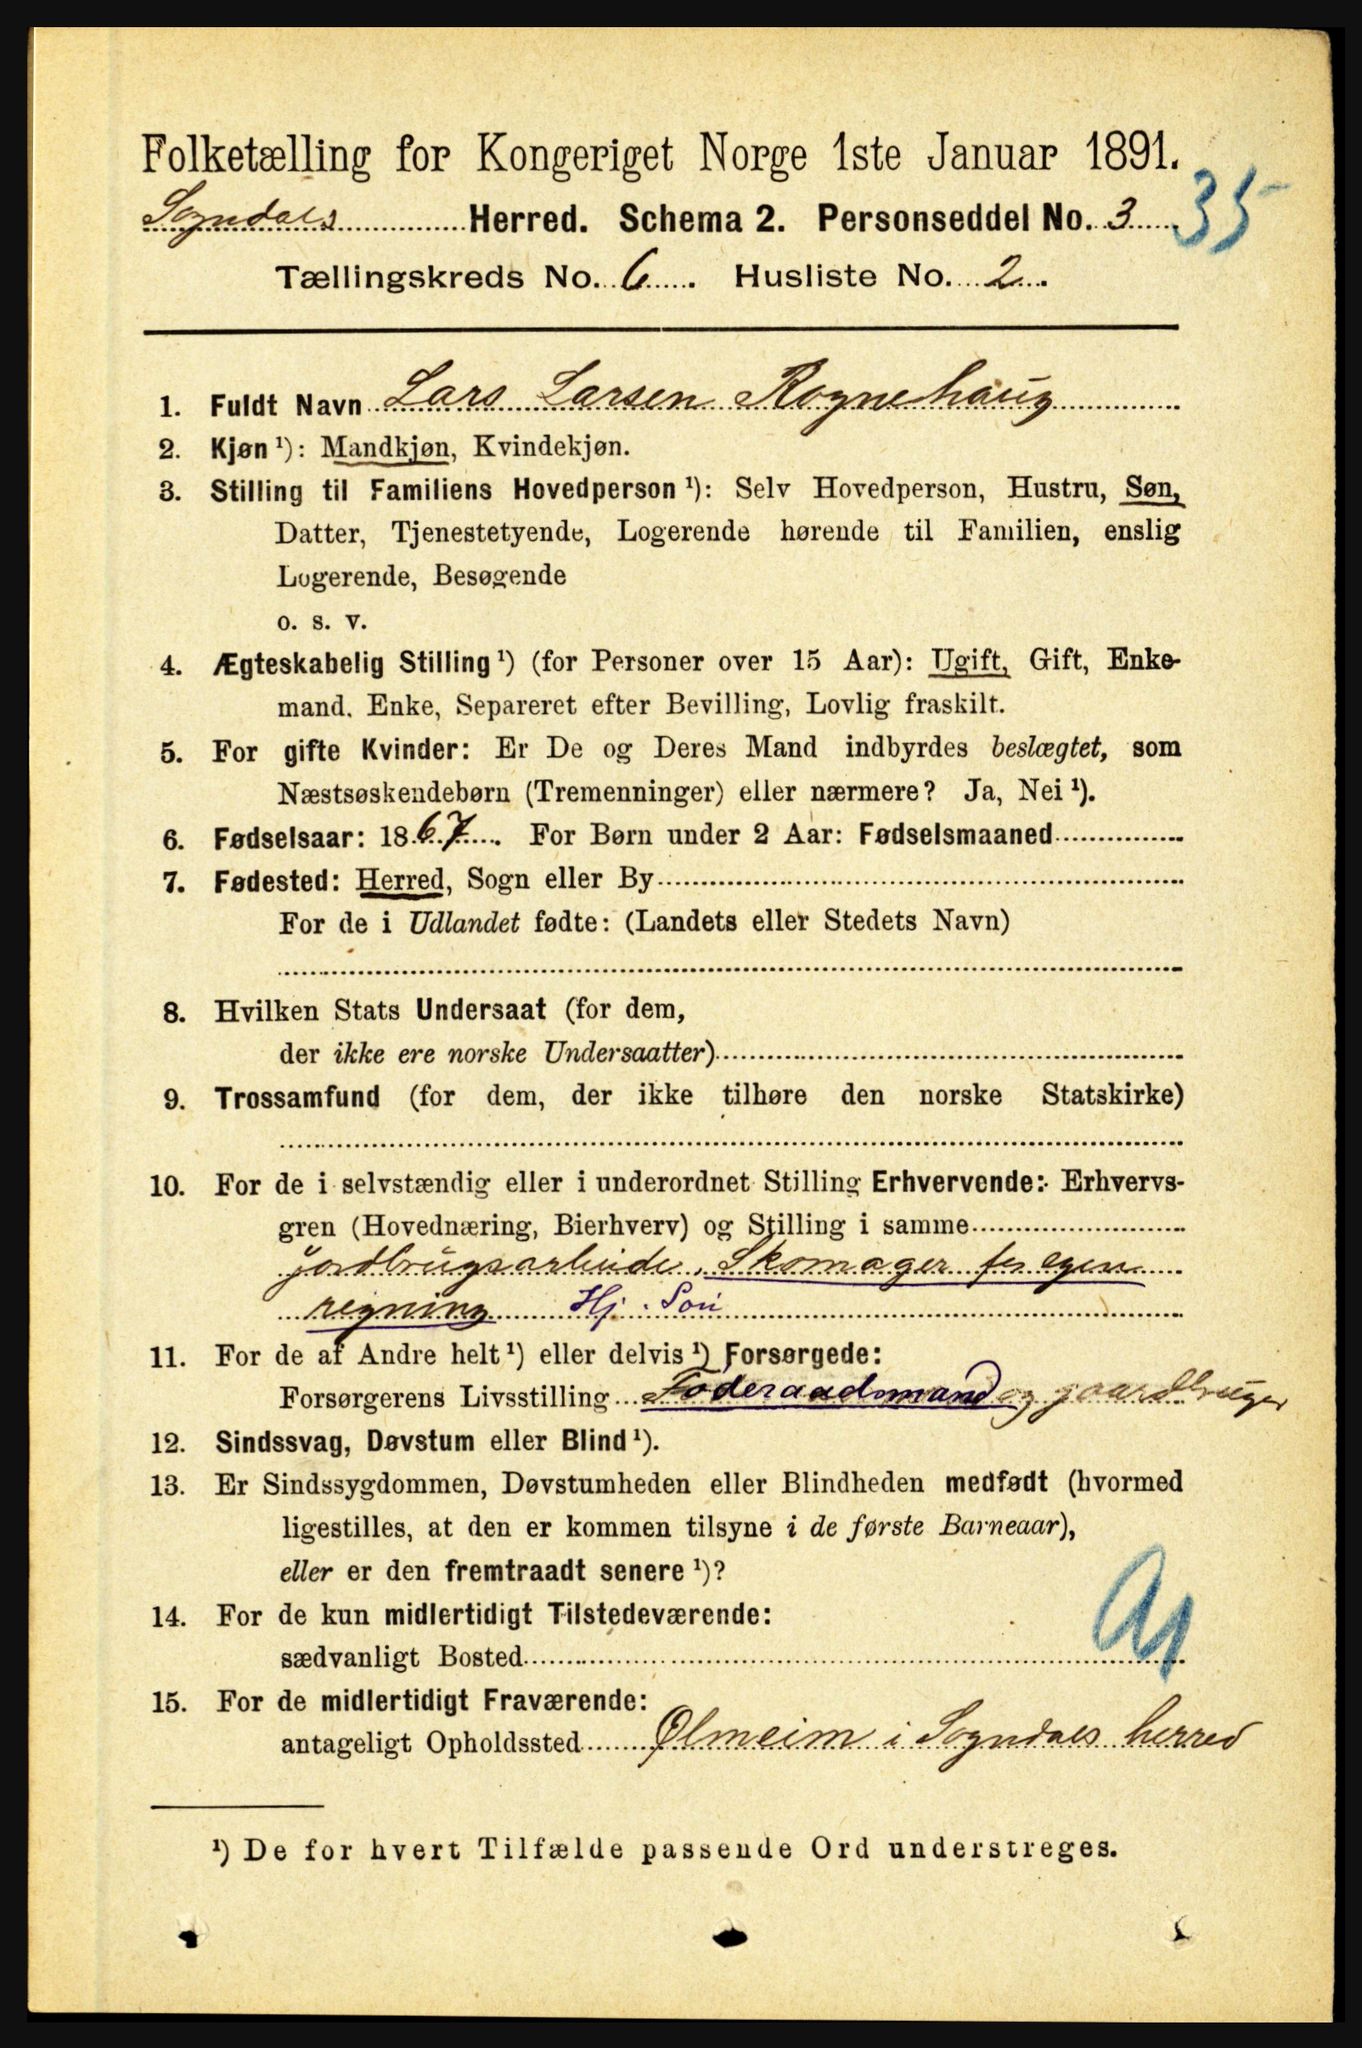 Folketælling for Kongeriget Norge 1ste Januar 1891.
35
Sogndals Herred. Schema 2. Personseddel No. 3
Tællingskreds No. 6. Husliste No. 2.
1. Fuldt Navn Lars Larsen Rognehaug
2. Kjøn ¹): Mandkjøn, Kvindekjøn.
3. Stilling til Familiens Hovedperson ¹): Selv Hovedperson, Hustru, Søn,
Datter, Tjenestetyende, Logerende hørende til Familien, enslig
Logerende, Besøgende
o. s. v.
4. Ægteskabelig Stilling ¹) (for Personer over 15 Aar): Ugift, Gift, Enke-
mand, Enke, Separeret efter Bevilling, Lovlig fraskilt.
5. For gifte Kvinder: Er De og Deres Mand indbyrdes beslægtet, som
Næstsøskendebørn (Tremenninger) eller nærmere? Ja, Nei ¹).
6. Fødselsaar: 1867. For Børn under 2 Aar: Fødselsmaaned
7. Fødested: Herred, Sogn eller By
For de i Udlandet fødte: (Landets eller Stedets Navn)
8. Hvilken Stats Undersaat (for dem,
der ikke ere norske Undersaatter)
9. Trossamfund (for dem, der ikke tilhøre den norske Statskirke)
10. For de i selvstændig eller i underordnet Stilling Erhvervende: Erhvervs-
gren (Hovednæring, Bierhverv) og Stilling i samme
jordbrugsarbeide, Skomager for egen
regning Hj. Søn
11. For de af Andre helt ¹) eller delvis ¹) Forsørgede:
Forsørgerens Livsstilling Føderaadsmand og gaardbruger
12. Sindssvag, Døvstum eller Blind ¹).
13. Er Sindssygdommen, Døvstumheden eller Blindheden medfødt (hvormed
ligestilles, at den er kommen tilsyne i de første Barneaar),
eller er den fremtraadt senere ¹)?
14. For de kun midlertidigt Tilstedeværende:
sædvanligt Bosted
15. For de midlertidigt Fraværende:
antageligt Opholdssted Ølmeim i Sogndals herred
¹) De for hvert Tilfælde passende Ord understreges.